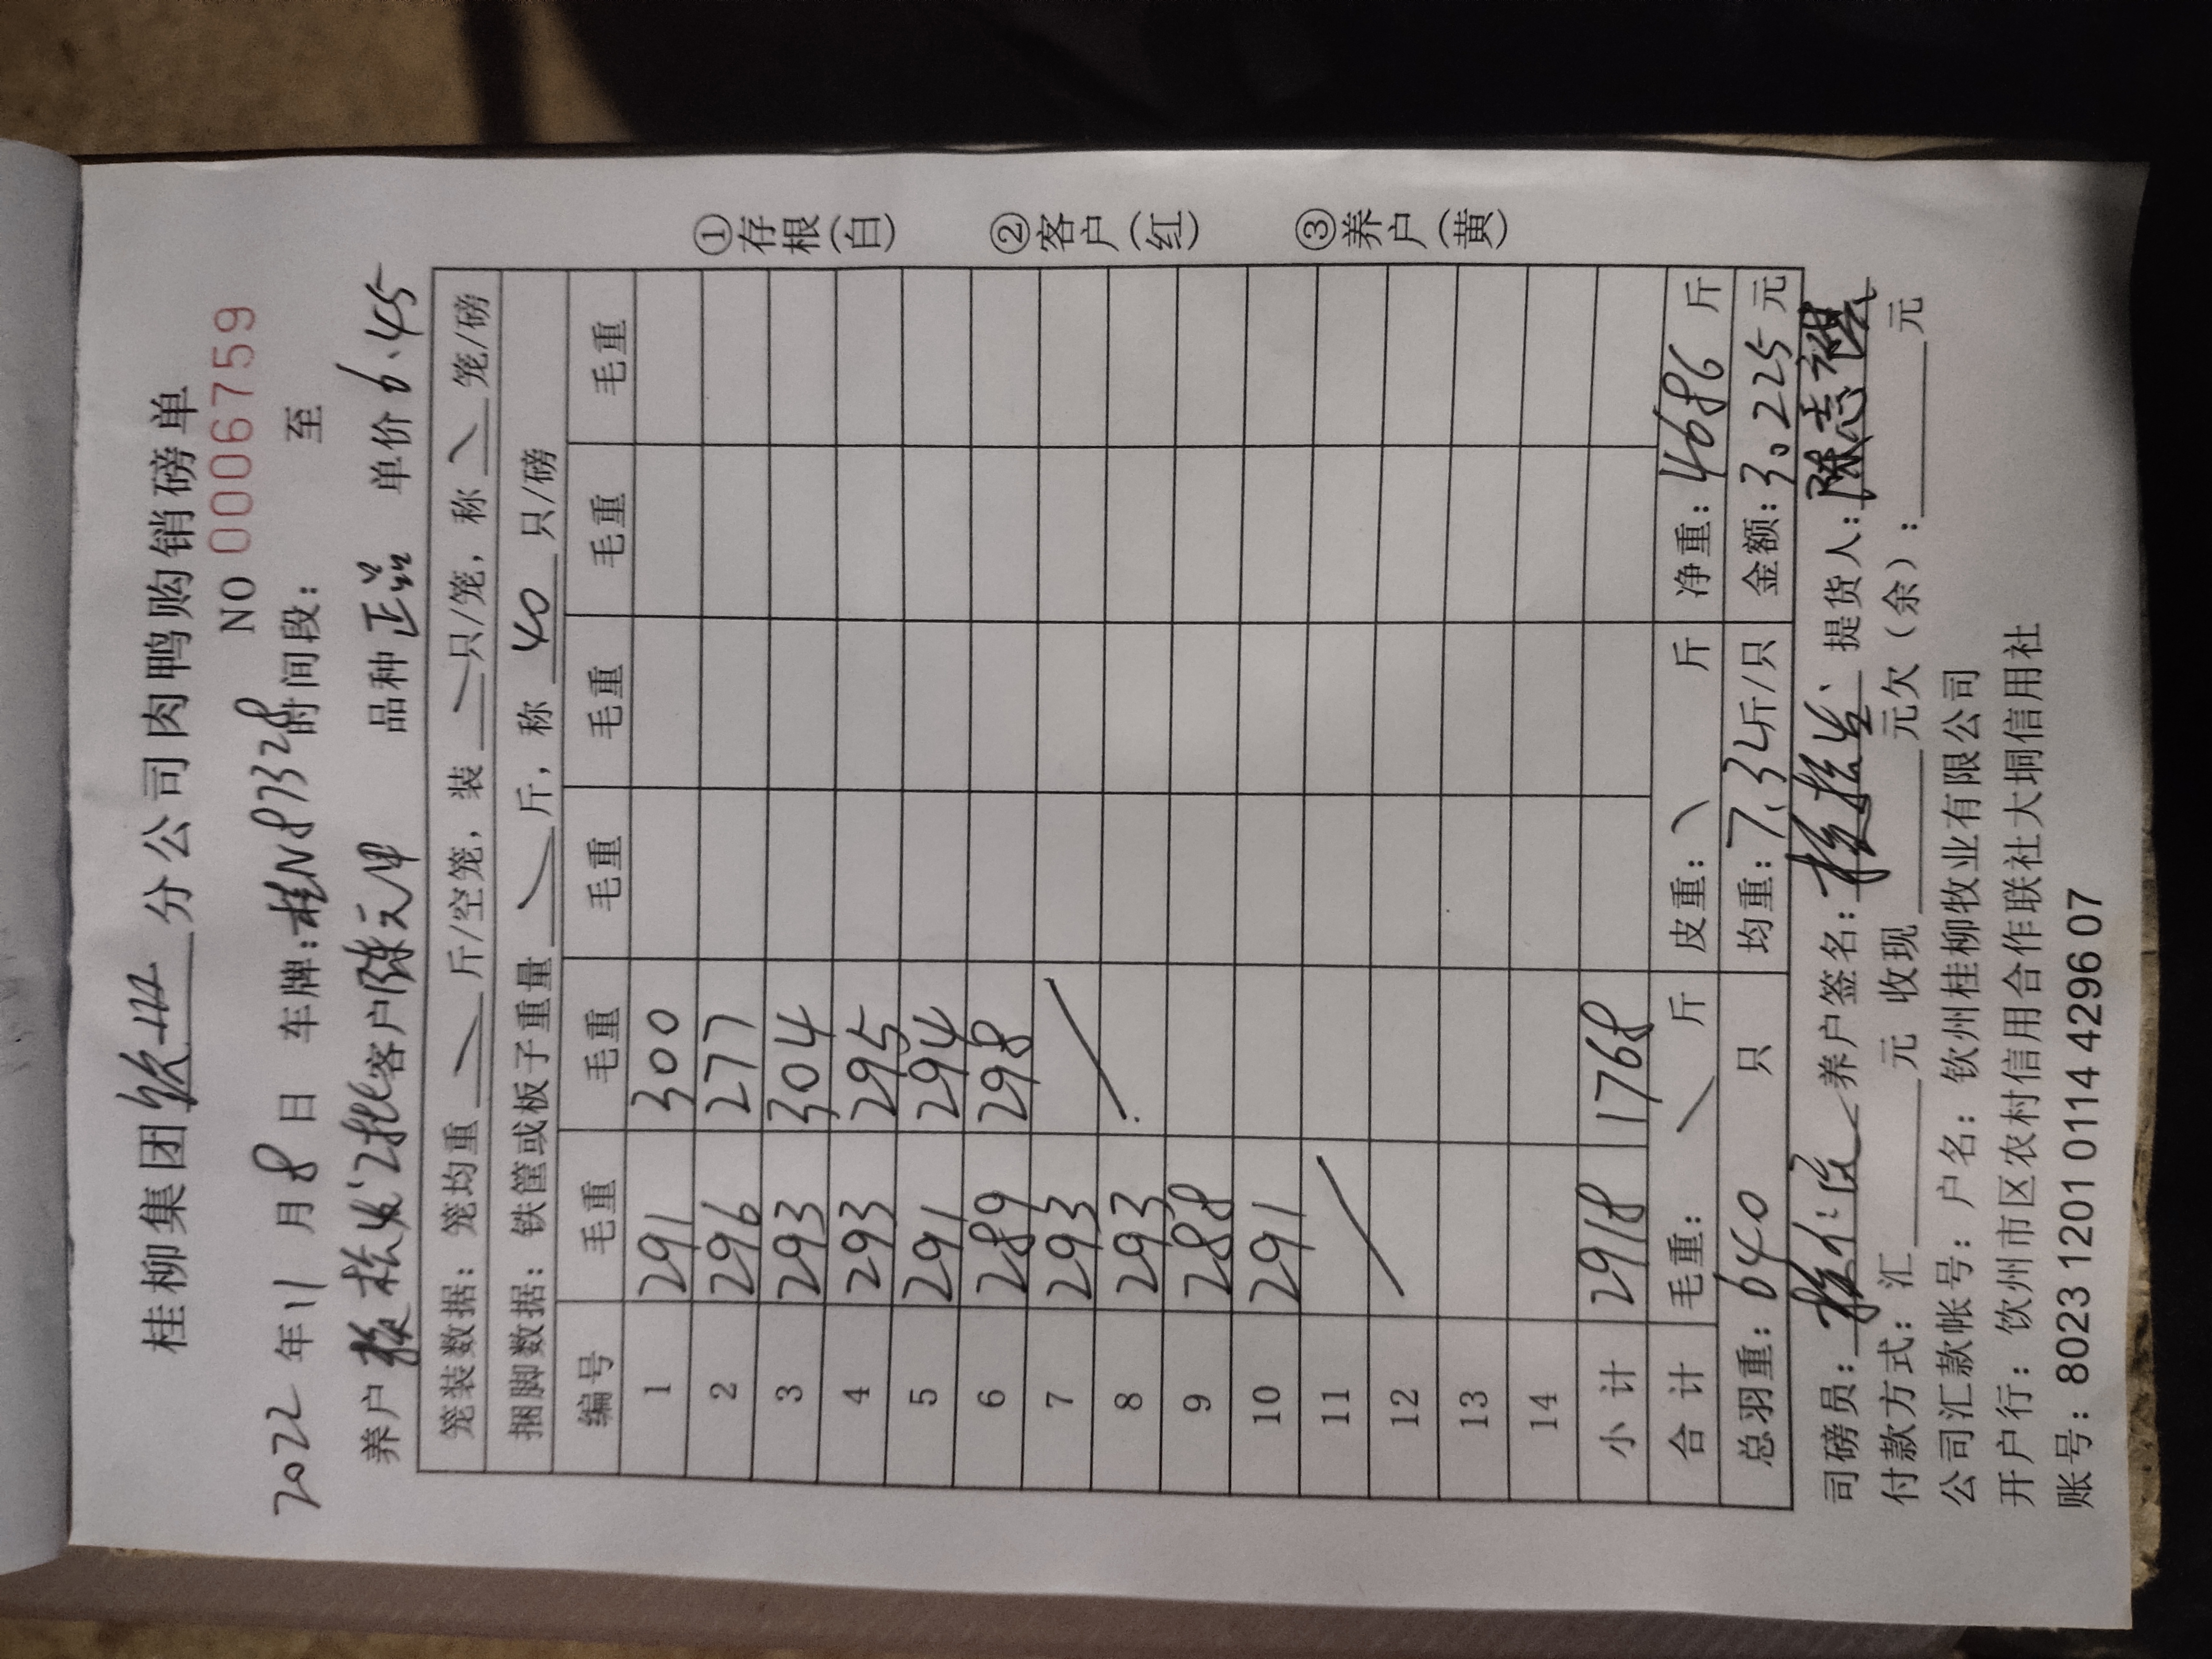 桂柳集团钦州分公司肉鸭购销磅单
NO 0006759
2022年11月8日 车牌:桂N87328 时间段: 至
养户 松发2批 客户 陈元 品种 正品 单价 6.45
笼装数据:笼均重 斤/空笼,装 只/笼,称 笼/磅
捆脚数据:铁筐或板子重量 斤,称 40 只/磅
编号 毛重 毛重 毛重 毛重 毛重 毛重
1 291 300
2 296 277
3 293 304
4 293 295
5 291 294
6 289 298
7 293
8 293
9 288
10 291
11
12
13
14
小计 2918 1768
合计 毛重: 斤 皮重: 斤 净重:4686 斤
总羽重:640 只 均重:7.3 斤/只 金额:30225 元
司磅员: 养户签名: 提货人:陈志
付款方式:汇 元 收现 元欠(余): 元
公司汇款帐号:户名:钦州桂柳牧业有限公司
开户行:钦州市区农村信用合作联社大垌信用社
账号:8023 1201 0114 4296 07
①存根(白)
②客户(红)
③养户(黄)